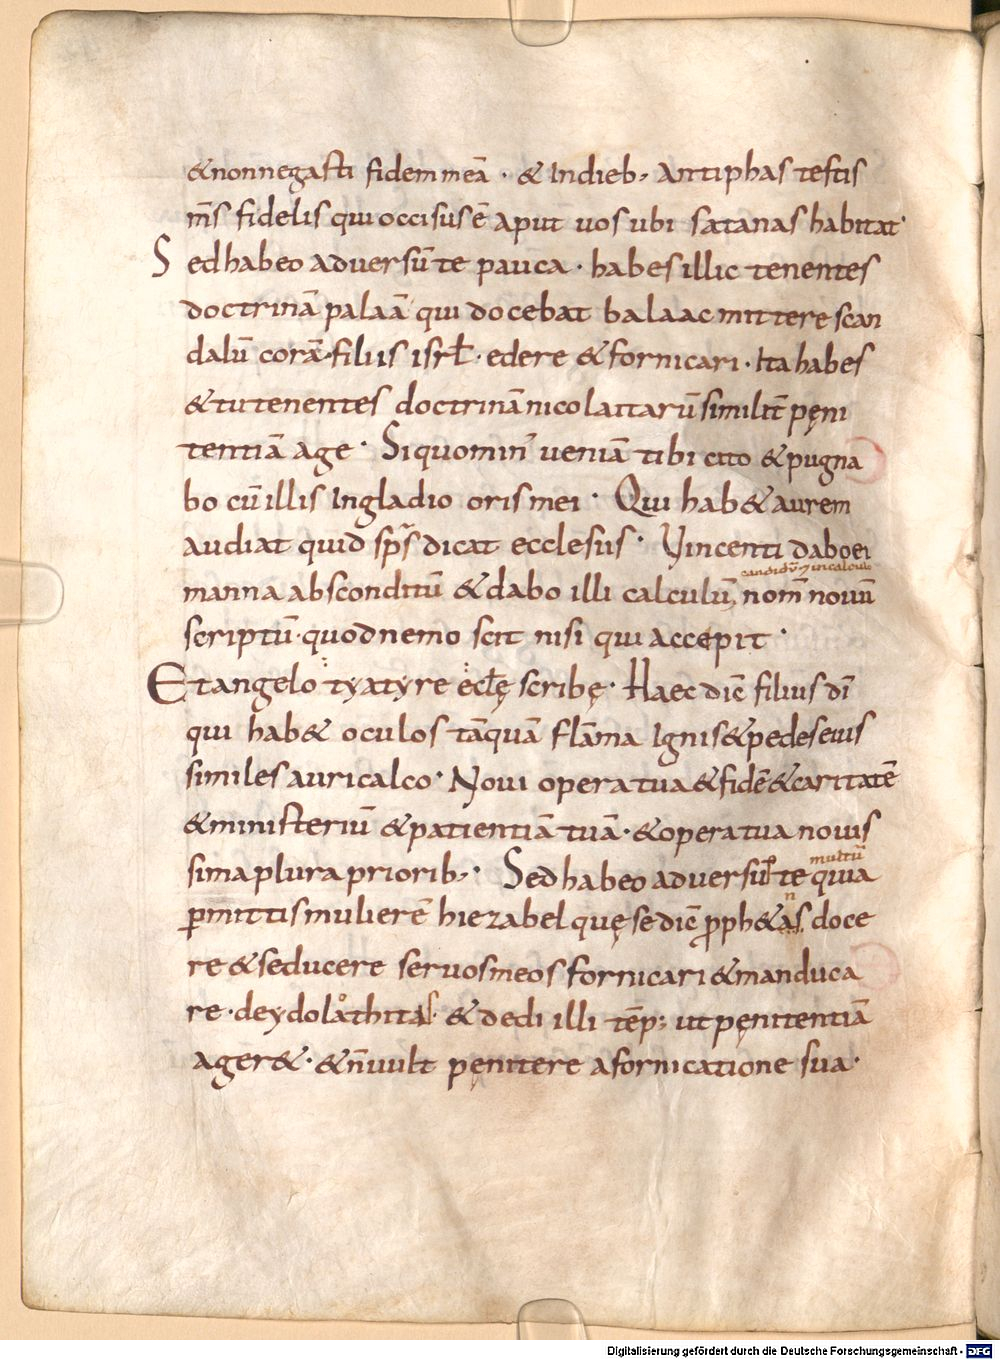 &nonnegasti fidem meā · & Indieb; Antiphas testis
m̄s fidelis qui occisus ē aput uos ubi satanas habitat·
Sed habeo aduersū te pauca · habes illic tenentes
doctrinā palaā qui docebat balaac mittere scan
dalū corā filiis isrł · edere & fornicari · Ita habes
& tu tenentes doctrinā nicolaitarū similit̄ pęni
tentiā age · Siquomin' ueniā tibi cito & pugna
bo cū illis Ingladio oris mei · Qui hab& aurem
audiat quid sp̄s dicat ecclesiis · Vincenti dabo ei
candidū & in calculo
manna absconditū & dabo illi calculū, nom̄ nouū
scriptū · quod nemo scit nisi qui accepit ·
Et angelo tyatyre ecłę scribę · Haec dic̄ filius dī
qui hab& oculos tāquā flāma Ignis & pedes eius
similes auricalco · Noui opera tua & fidē & caritatē
& ministeriū & patientiā tuā · & opera tua nouis
sima plura priorib; · Sed habeo aduersū te quia
multū
p̄mittis mulierē hiezabel quę se dic̄ proph&as doce
n
re & seducere seruos meos fornicari & manduca
re · de ydolothitis · & dedi illi tēp; ut pęnitentiā
ager& · & n̄ uult pęnitere a fornicatione sua ·
Digitalisierung gefördert durch die Deutsche Forschungsgemeinschaft - DFG